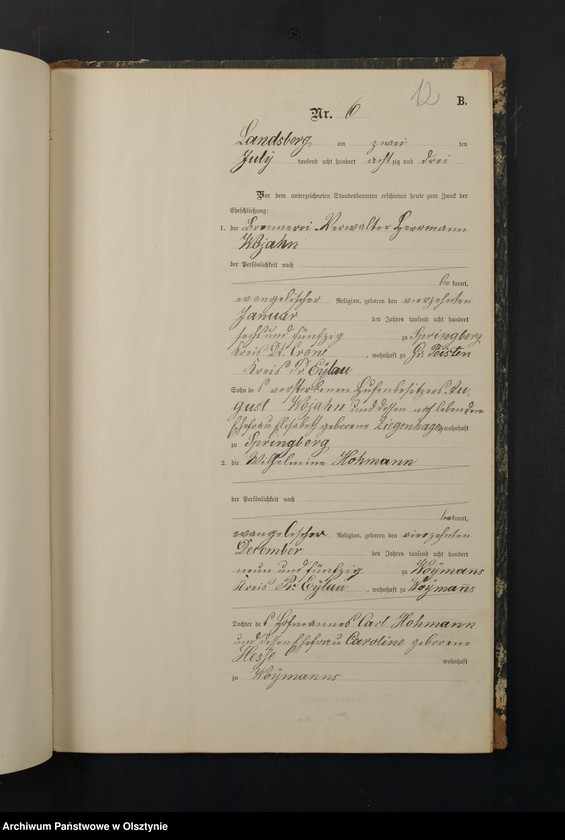 12
B.
Nr. 6
Landsberg am zwei ten
July tausend acht hundert acht zig und drei
Vor dem unterzeichneten Standesbeamten erschienen heute zum Zweck der
Eheschließung:
1. der Brennerei Verwalter Herrmann
Wojahn
der Persönlichkeit nach
be kannt,
evangelischer Religion, geboren den vierzehnten
Januar des Jahres tausend acht hundert
sechs und fünfzig zu Springberg
Kreis Dt. Crone, wohnhaft zu Gr. Peisten
Kreis Pr. Eylau
Sohn des verstorbenen Hufenbesitzers Au-
gust Wojahn und dessen noch lebenden
Ehefrau Elisabeth geborene Ziegenhagen wohnhaft
zu Springberg
2. die Wilhelmine Hohmann
der Persönlichkeit nach
be kannt,
evangelischer Religion, geboren den vierzehnten
December des Jahres tausend acht hundert
neun und fünfzig zu Woymans
Kreis Pr. Eylau, wohnhaft zu Woymanns
Tochter des Hofmannes Carl Hohmann
und dessen Ehefrau Caroline geborene
Hesse wohnhaft
zu Woymanns
Archiwum Państwowe w Olsztynie